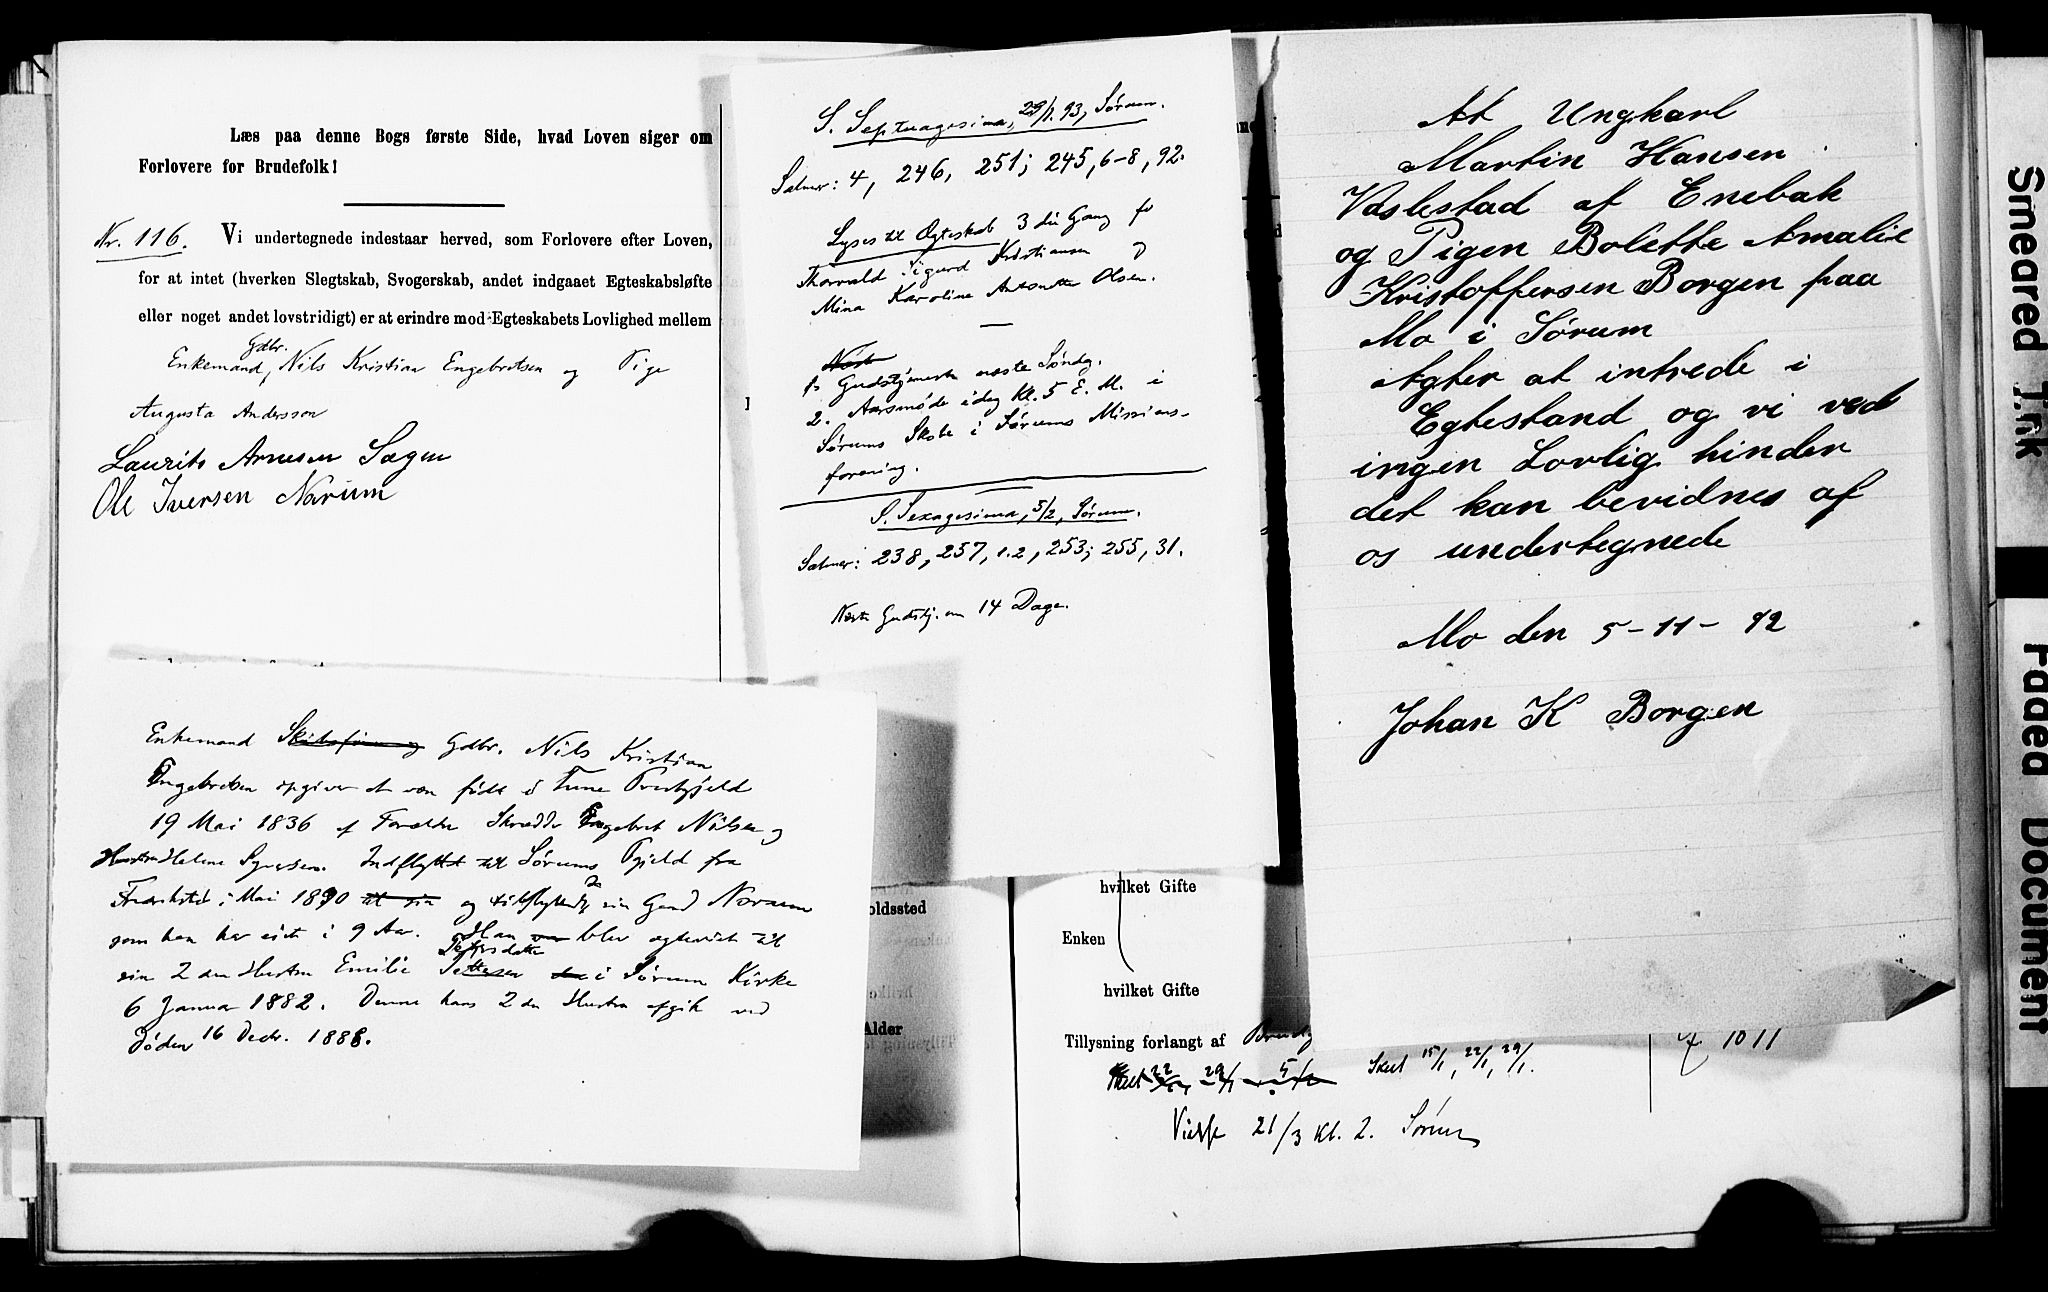 Læs paa denne Bogs første Side, hvad Loven siger om
Forlovere for Brudefolk!
Nr. 116. Vi undertegnede indestaar herved, som Forlovere efter Loven,
for at intet (hverken Slegtskab, Svogerskab, andet indgaaet Egteskabsløfte
eller noget andet lovstridigt) er at erindre mod Egteskabets Lovlighed mellem
Gdbr.
Enkemand, Nils Kristian Engebretsen og Pige
Augusta Andersson
Laurits Arnesen Sagen
Ole Iversen Norum
Enkemand Gdbr. Nils Kristian
Engebretsen opgiver at være født i Tune Prestgjeld
19 Mai 1836 af Forældre Skrædder Engebret Nilsen og
Hustru Helene Syversen. Indflyttet til Sørums Pgjeld fra
i Mai 1890 og sin Gaard Norum
som han har eiet i 9 Aar. Han blev ægteviet til
Petersdatter
sin 2den Hustru Emilie i Sørum Kirke
6 Januar 1882. Denne hans 2den Hustru afgik ved
Døden 16 Decbr. 1888.
S. Septuagesima, 29/1. 93, Sørum.
Salmer: 4, 246, 251; 245, 6-8, 92.
Lyses til Ægteskab 3die Gang for
Thorvald Sigurd Kristiansen og
Mina Karoline Antonette Olsen.
Næste
1. Gudstjeneste næste Søndag.
2. Aarsmøde idag kl. 5 E. M. i
Sørums Skole i Sørums Missions-
forening.
S. Sexagesima, 5/2, Sørum.
Salmer: 238, 257, 1.2, 253; 255, 31.
Næste Gudstj. om 14 Dage.
At Ungkarl
Martin Hansen
Vaslestad af Enebak
og Pigen Bolette Amalie
Kristoffersen Borgen paa
Mo i Sørum
Agter at intrede i
Egtestand og vi ved
ingen Lovlig hinder
det kan bevidnes af
os undertegnede
Mo den 5-11-92
Johan K Borgen
oldssted
Alder
hvilket Gifte
Enken
hvilket Gifte
Tillysning forlangt af Brudg
22 29/1 5/2 Skeet 15/1, 22/1, 29/1.
1011
Vielse 21/3 Kl. 2. Sørum
Smeared Ink
Faded Document